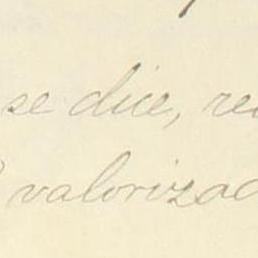 se dice, re
valoriza